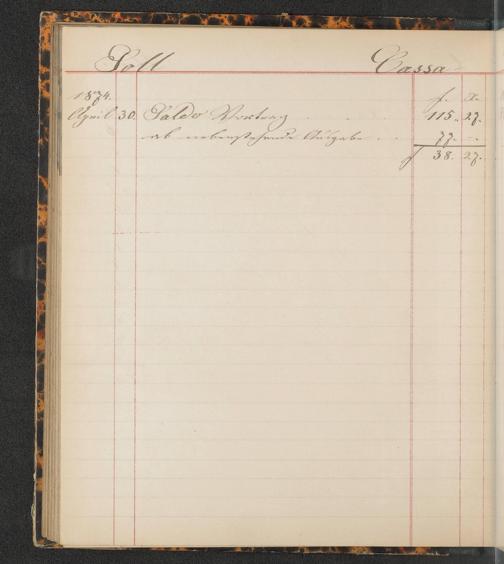 Soll Cassa
1874. f. x.
April 30. Saldo Vortrag . . . 115. 27.
ab nebenstehende Ausgabe . . 77. -
f 38. 27.